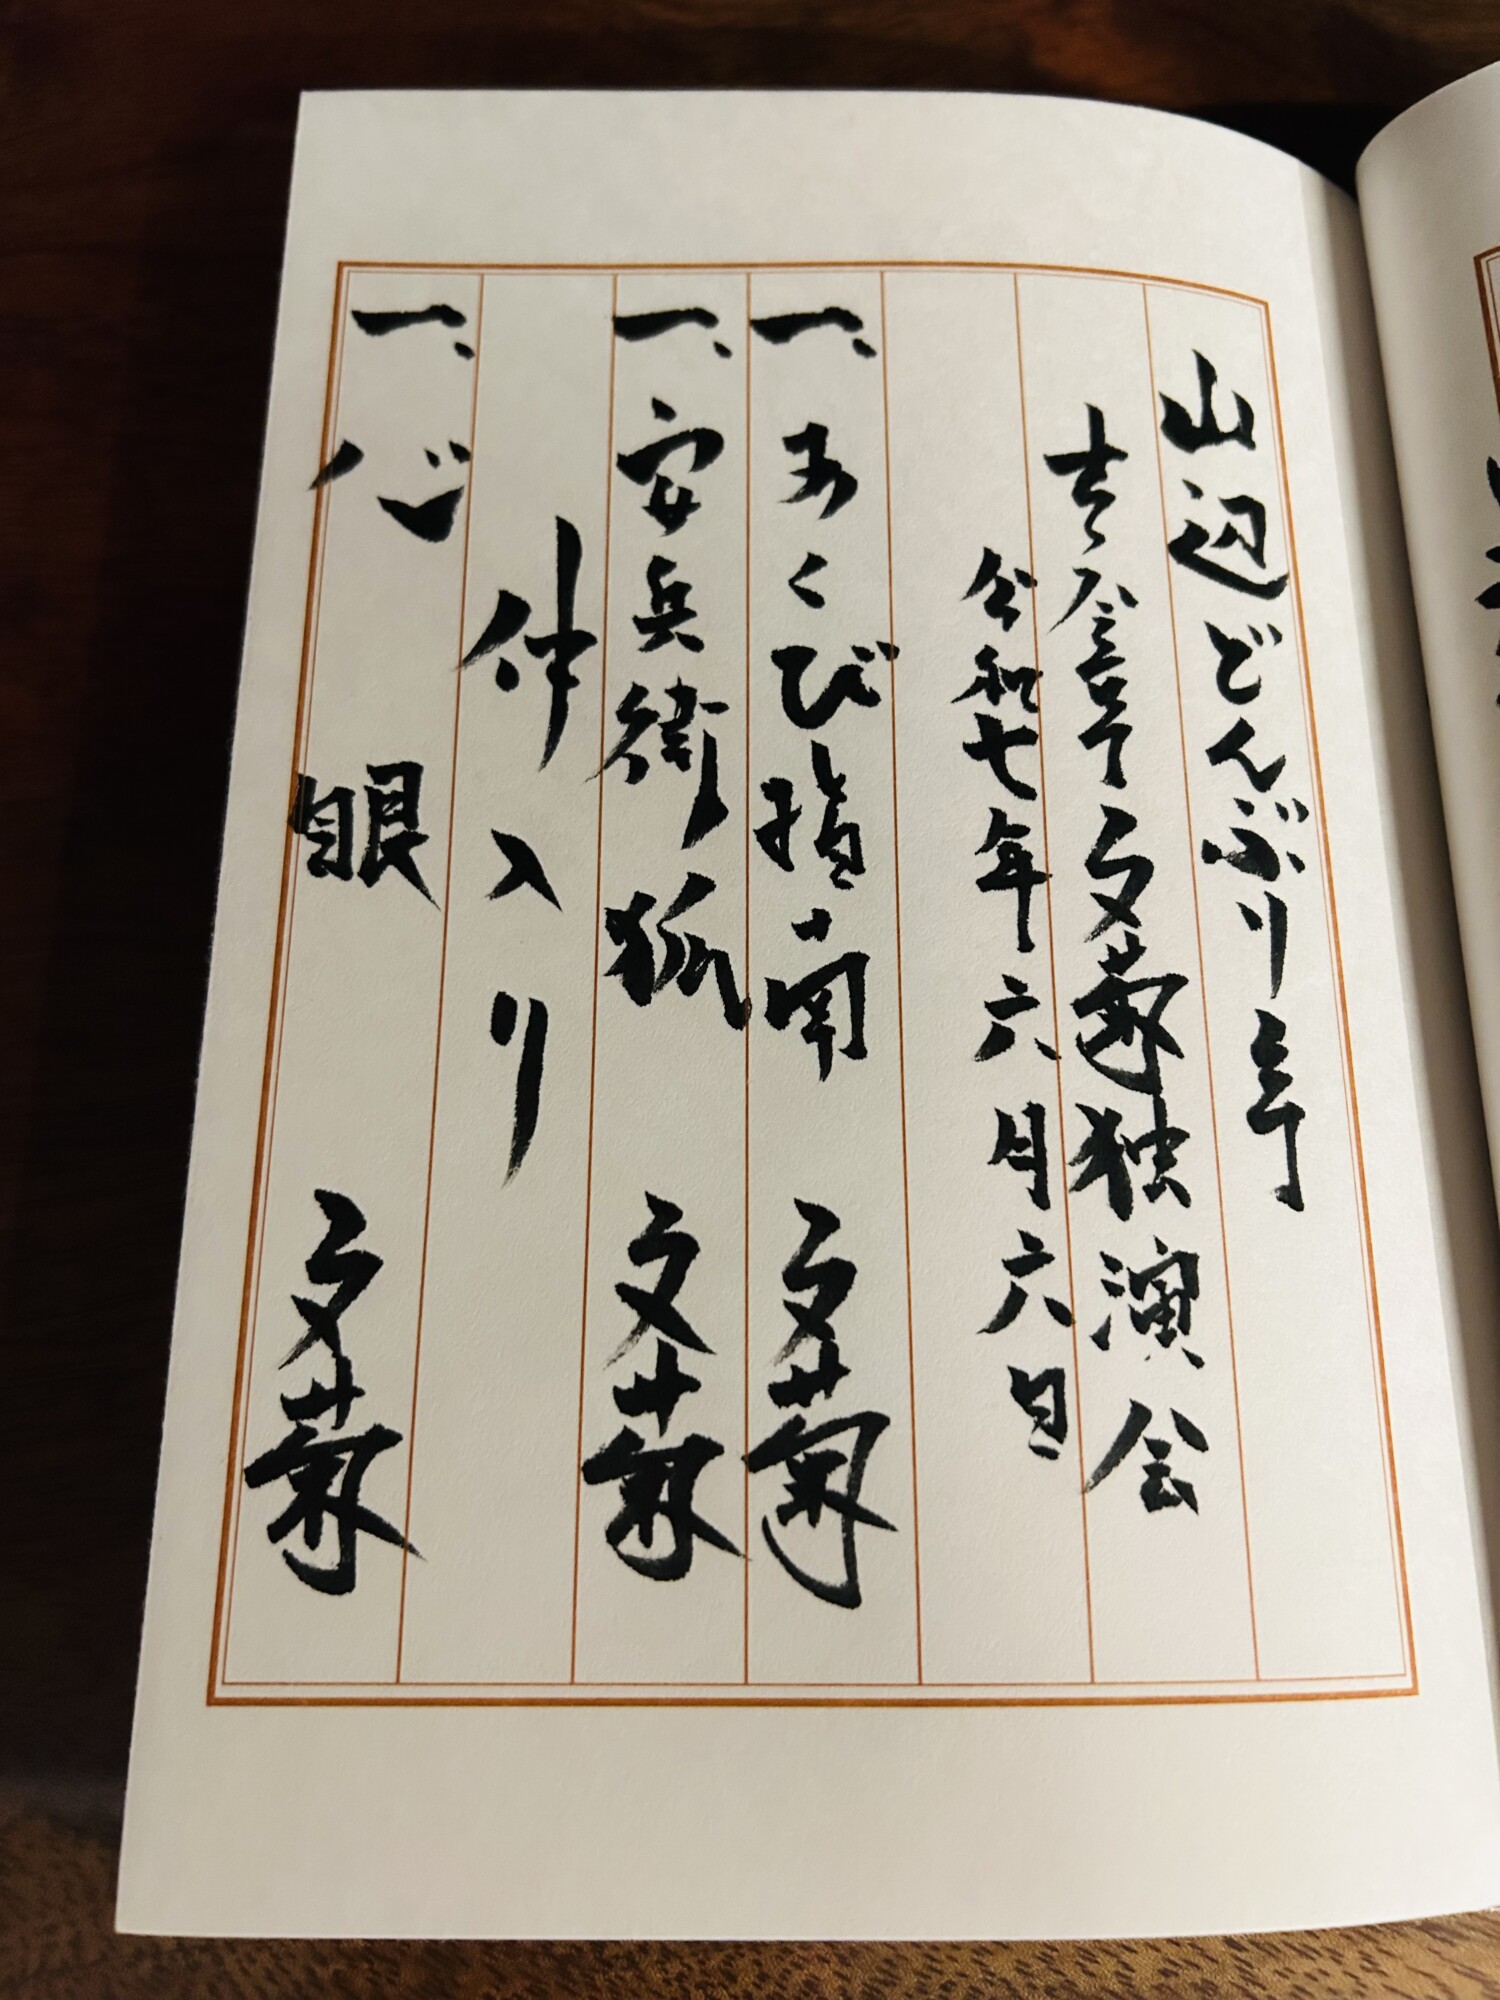 山辺どんぶり亭
古今亭文菊独演会
令和七年六月六日
一、あくび指南 文菊
一、安兵衛狐 文菊
仲入り
一、心眼 文菊